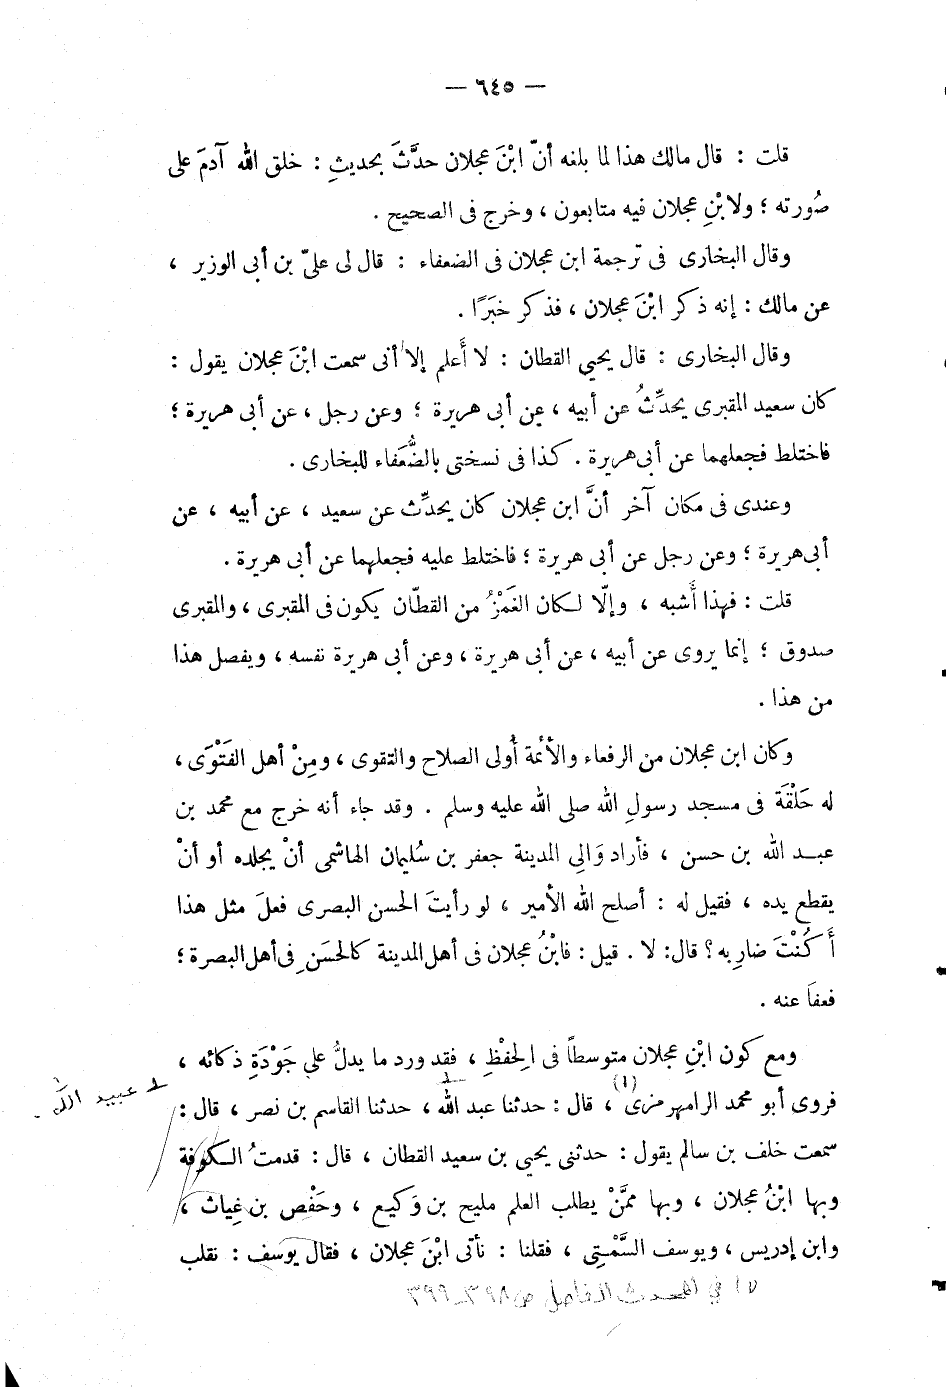 — ٦٤٥ —
قلت : قال مالك هذا لما بلغه أنّ ابْنَ عجلان حدَّثَ بحديثِ : خلق الله آدمَ على
صُورته ؛ ولابْنِ عجلان فيه متابعون ، وخرج فى الصحيح .
وقال البخارى فى ترجمة ابن عجلان فى الضعفاء : قال لى علىّ بن أبى الوزير ،
عن مالك : إنه ذكر ابْنَ عجلان ، فذكر خبَرًا .
وقال البخارى : قال يحيي القطان : لا أَعلم إلا أنى سمعت ابْنَ عجلان يقول :
كان سعيد المقبرى يحدِّثُ عن أبيه ، عن أبى هريرة ؛ وعن رجل ، عن أبى هريرة ؛
فاختلط فجعلهما عن أبى هريرة . كذا فى نسختى بالضُّعَفاء للبخارى .
وعندى فى مكان آخر أنَّ ابن عجلان كان يحدِّث عن سعيد ، عن أبيه ، عن
أبى هريرة ؛ وعن رجل عن أبى هريرة ؛ فاختلط عليه فجعلهما عن أبى هريرة .
قلت : فهذا أَشبه ، وإلّا لكان الغَمْزُ من القطّان يكون فى المقبرى ، والمقبرى
صدوق ؛ إنما يروى عن أبيه ، عن أبى هريرة ، وعن أبى هريرة نفسه ، ويفصل هذا
من هذا .
وكان ابن عجلان من الرفعاء والأئمة أُولى الصلاح والتقوى ، ومِنْ أهل الفَتْوَى ،
له حَلْقَة فى مسجد رسولِ الله صلى الله عليه وسلم . وقد جاء أنه خرج مع محمد بن
عبد الله بن حسن ، فأراد وَالِى المدينة جعفر بن سُليمان الهاشمى أنْ يجلده أو أنْ
يقطع يده ، فقيل له : أصلح الله الأمير ، لو رأيتَ الحسن البصرى فعلَ مثل هذا
أَكُنْتَ ضارِبه ؟ قال : لا . قيل : فابْنُ عجلان فى أهل المدينة كالحسَنِ فى أهل البصرة ؛
فعفاَ عنه .
ومع كون ابْنِ عجلان متوسطاً فى الحِفْظِ ، فقد ورد ما يدلُّ على جَوْدَةِ ذكائه ،
فروى أبو محمد الرامهرمزى (١) ، قال : حدثنا عبد الله ، حدثنا القاسم بن نصر ، قال :
عبيد الله
سمعت خلف بن سالم يقول : حدثنى يحيي بن سعيد القطان ، قال : قدمتُ الكوفة
وبها ابْنُ عجلان ، وبها ممَّنْ يطلب العلم مليح بن وَكيع ، وحَفْص بن غِياث ،
وابن إدريس ، ويوسف السَّمْتِى ، فقلنا : نأتى ابْنَ عجلان ، فقال يوسف : نقلب
(١) في المحدث الفاصل ص ٣٩٨ـ٣٩٩